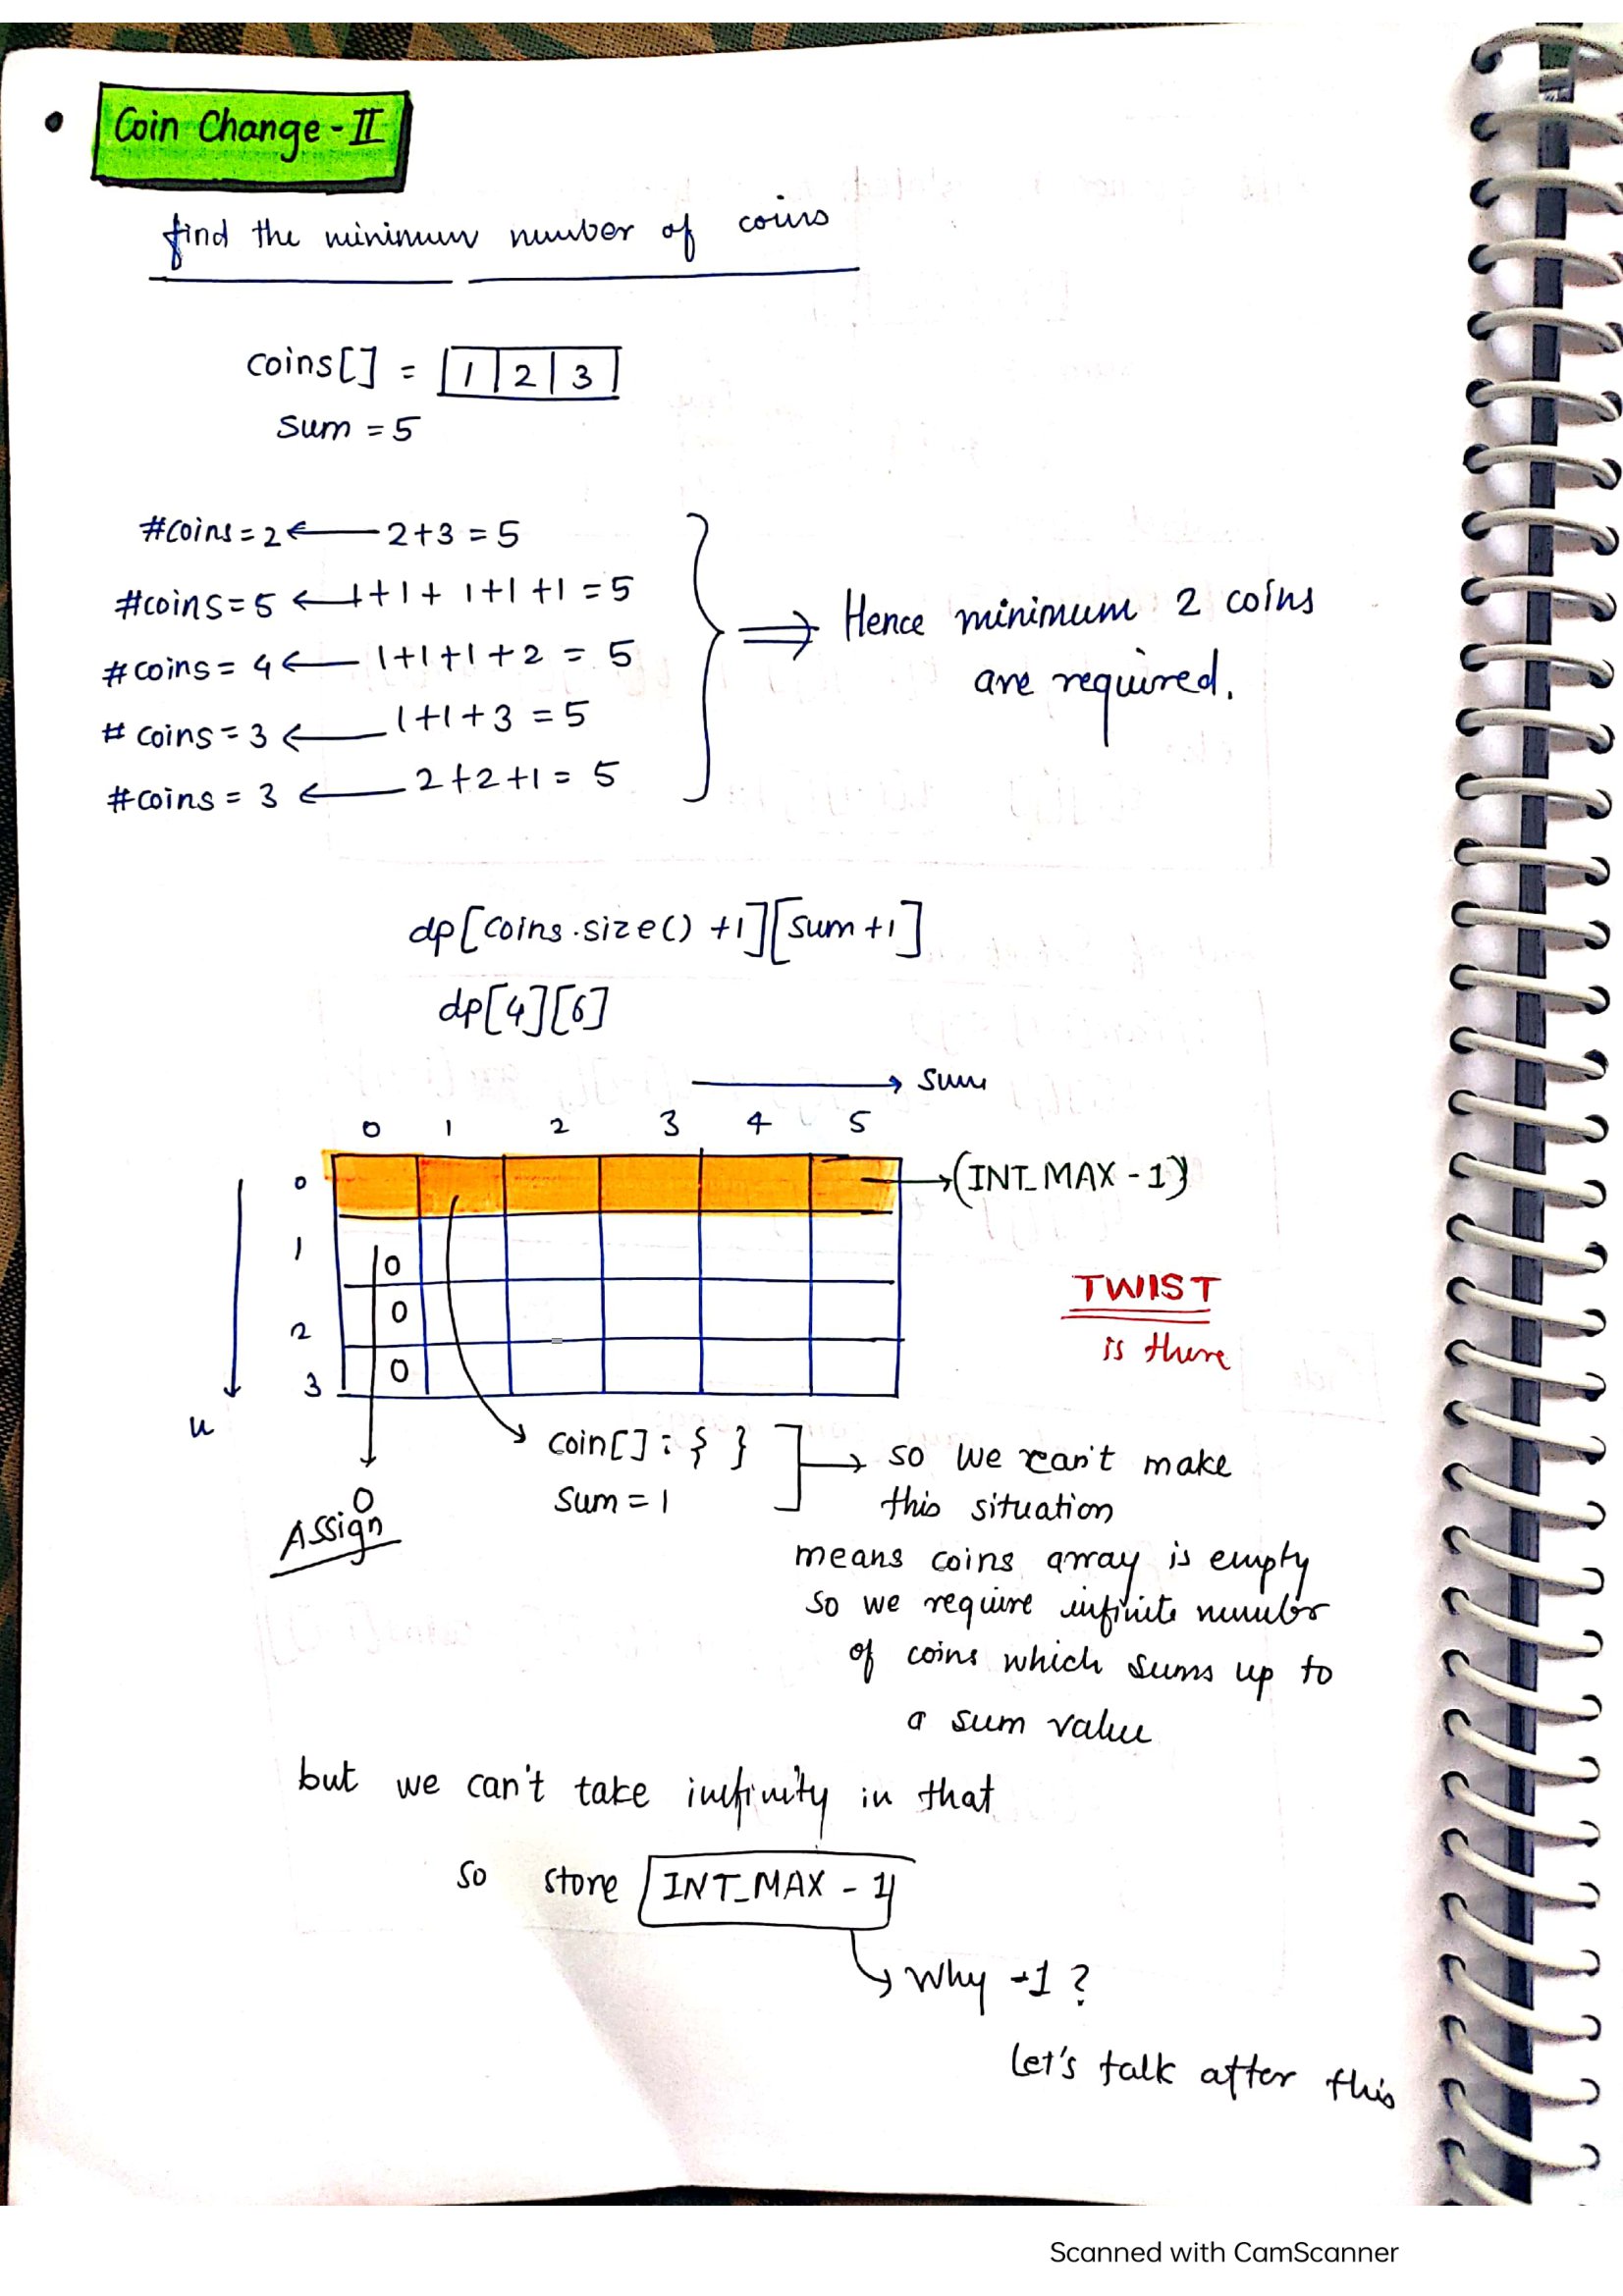 Coin Change - II
find the minimum number of coins
coins[] = 1 2 3
sum = 5
#coins = 2 ← 2+3 = 5
#coins = 5 ← 1+1+1+1+1 = 5
#coins = 4 ← 1+1+1+2 = 5
#coins = 3 ← 1+1+3 = 5
#coins = 3 ← 2+2+1 = 5
⇒ Hence minimum 2 coins
are required.
dp[coins.size() +1][sum +1]
dp[4][6]
→ sum
0 1 2 3 4 5
0 → (INT_MAX - 1)
1 0
2 0
3 0
n
TWIST
is there
0
Assign
coin[] : { }
sum = 1
→ so we can't make
this situation
means coins array is empty
so we require infinite number
of coins which sums up to
a sum value
but we can't take infinity in that
so store INT_MAX - 1
↳ Why -1 ?
Let's talk after this
Scanned with CamScanner